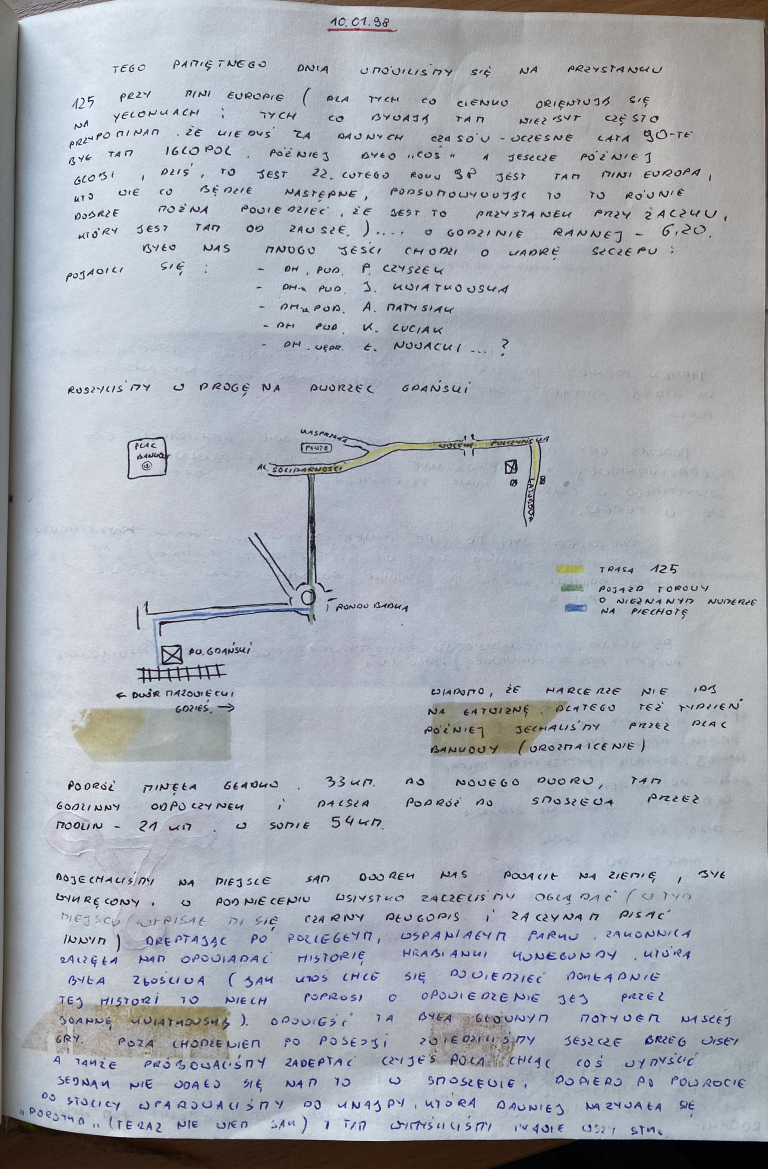 10.01.98
TEGO PAMIĘTNEGO DNIA UMÓWILIŚMY SIĘ NA PRZYSTANKU
125 PRZY MINI EUROPIE ( DLA TYCH CO CIENKO ORIENTUJĄ SIĘ
NA YELONKACH I TYCH CO BYWAJĄ TAM NIEZBYT CZĘSTO
PRZYPOMINAM, ŻE KIEDYŚ ZA DAWNYCH CZASÓW - WCZESNE LATA 90-TE
BYŁ TAM IGLOPOL, PÓŹNIEJ BYŁO "COŚ" A JESZCZE PÓŹNIEJ
GLOBI, DZIŚ, TO JEST 22. LUTEGO ROKU 98 JEST TAM MINI EUROPA,
KTO WIE CO BĘDZIE NASTĘPNE, PODSUMOWUJĄC TO TO RÓWNIE
DOBRZE MOŻNA POWIEDZIEĆ, ŻE JEST TO PRZYSTANEK PRZY ŻACZKU,
KTÓRY JEST TAM OD ZAWSZE.).... O GODZINIE RANNEJ - 6.20.
BYŁO NAS MNOGO JEŚCI CHODZI O KADRĘ SZCZEPU :
POJAWILI SIĘ : - DH. PWD. P. CZYSZEK
- DH-a PWD. J. KWIATKOWSKA
- DH-a PWD. A. MATYSIAK
- DH PWD. K. LUCIAK
- DH. WĘDR. Ł. NOWACKI ... ?
RUSZYLIŚMY W DROGĘ NA DWORZEC GDAŃSKI
PLAC BANKOWY
KASPRZAKA
WOLSKA
POŁCZYŃSKA
AL. SOLIDARNOŚCI
LAZUROWA
RONDO BABKA
PKP. GDAŃSKI
TRASA 125
POJAZD TOROWY
O NIEZNANYM NUMERZE
NA PIECHOTĘ
← DWÓR MAZOWIECKI
GDZIEŚ →
WIADOMO, ŻE HARCERZE NIE IDĄ
NA ŁATWIZNĘ. DLATEGO TEŻ TYDZIEŃ
PÓŹNIEJ JECHALIŚMY PRZEZ PLAC
BANKOWY (UROZMAICENIE)
PODRÓŻ MINĘŁA GŁADKO. 33 KM. DO NOWEGO DWORU, TAM
GODZINNY ODPOCZYNEK I DALSZA PODRÓŻ DO SMOSZEWA PRZEZ
MODLIN - 21 KM. W SUMIE 54 KM.
DOJECHALIŚMY NA MIEJSCE SAM DWOREK NAS POWALIŁ NA ZIEMIĘ, BYŁ
WYKRĘCONY. W PODNIECENIU WSZYSTKO ZACZĘLIŚMY OGLĄDAĆ (W TYM
MIEJSCU WYPISAŁ MI SIĘ CZARNY DŁUGOPIS I ZACZYNAM PISAĆ
INNYM) DREPTAJĄC PO ROZLEGŁYM, WSPANIAŁYM PARKU. ZAKONNICA
ZACZĘŁA NAM OPOWIADAĆ HISTORIĘ HRABIANKI KUNEGUNDY, KTÓRA
BYŁA ZŁOŚLIWA (JAK KTOŚ CHCE SIĘ DOWIEDZIEĆ DOKŁADNIE
TEJ HISTORI TO NIECH POPROSI O OPOWIEDZENIE JEJ PRZEZ
JOANNĘ KWIATKOWSKĄ). OPOWIEŚĆ TA BYŁA GŁÓWNYM MOTYWEM NASZEJ
GRY. POZA CHODZENIEM PO POSESJI ZWIEDZILIŚMY JESZCZE BRZEG WISŁY
A TAKŻE PRÓBOWALIŚMY ZADEPTAĆ CZYJEŚ POLA CHCĄC COŚ WYMYŚLIĆ
JEDNAK NIE UDAŁO SIĘ NAM TO W SMOSZEWIE, DOPIERO PO POWROCIE
DO STOLICY WPAROWALIŚMY DO KNAJPY, KTÓRA DAWNIEJ NAZYWAŁA SIĘ
(TERAZ NIE WIEM JAK) I TAM WYMYŚLILIŚMY